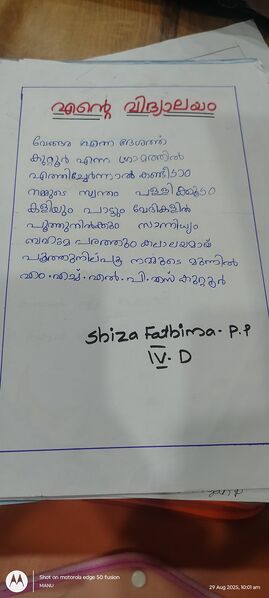 എന്റെ വിദ്യാലയം
വേങ്ങര എന്ന ദേശത്ത്
കുറ്റൂർ എന്ന ഗ്രാമത്തിൽ
എത്തിച്ചേർന്നാൽ കണ്ടീടാം
നമ്മുടെ സ്വന്തം പള്ളിക്കൂടം
കളിയും പാട്ടും വേദികളിൽ
പൂത്തുനിൽക്കും സാന്നിധ്യം
പരത്തും
പൂത്തുനില്പൂ നമ്മുടെ മുന്നിൽ
എം.എച്ച്.എൽ.പി.എസ് കുറ്റൂർ
Shiza Fathima. P.P
IV. D
Shot on motorola edge 50 fusion
MANU
29 Aug 2025, 10:01 am